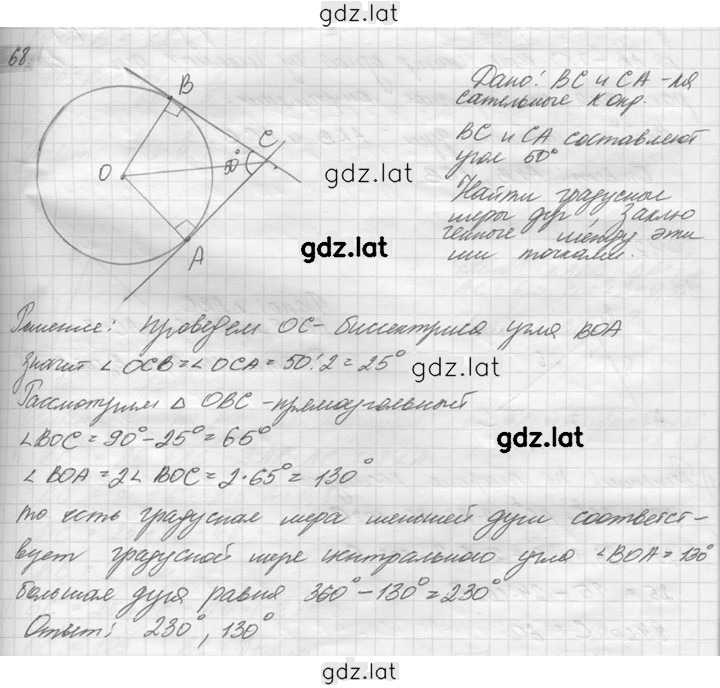 gdz.lat
68.
B
C
O
50°
A
Дано: BC и CA - ка
сательные к окр.
BC и CA составляют
угол 50°
gdz.lat
Найти градусные
меры дуг, заклю
ченные между эти
ми точками.
gdz.lat
Решение: проведем OC - биссектриса угла BOA
Значит ∠OCB = ∠OCA = 50:2 = 25°
gdz.lat
Рассмотрим △OBC - прямоугольный
∠BOC = 90° - 25° = 65°
gdz.lat
∠BOA = 2∠BOC = 2·65° = 130°
то есть градусная мера меньшей дуги соответст-
вует градусной мере центрального угла ∠BOA = 130°
большая дуга равна 360° - 130° = 230°
Ответ: 230°, 130°
gdz.lat